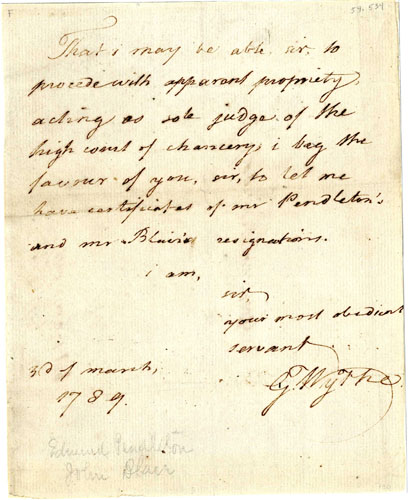 F
54.534
That i may be able, sir, to
procede with apparent propriety,
acting as sole judge of the
high court of chancery, i beg the
favour of you, sir, to let me
have certificates of mr Pendleton's
and mr Blair's resignations.
i am,
sir,
your most obedient
servant
G. Wythe
3d of march,
1789.
Edmund Pendleton
John Blair